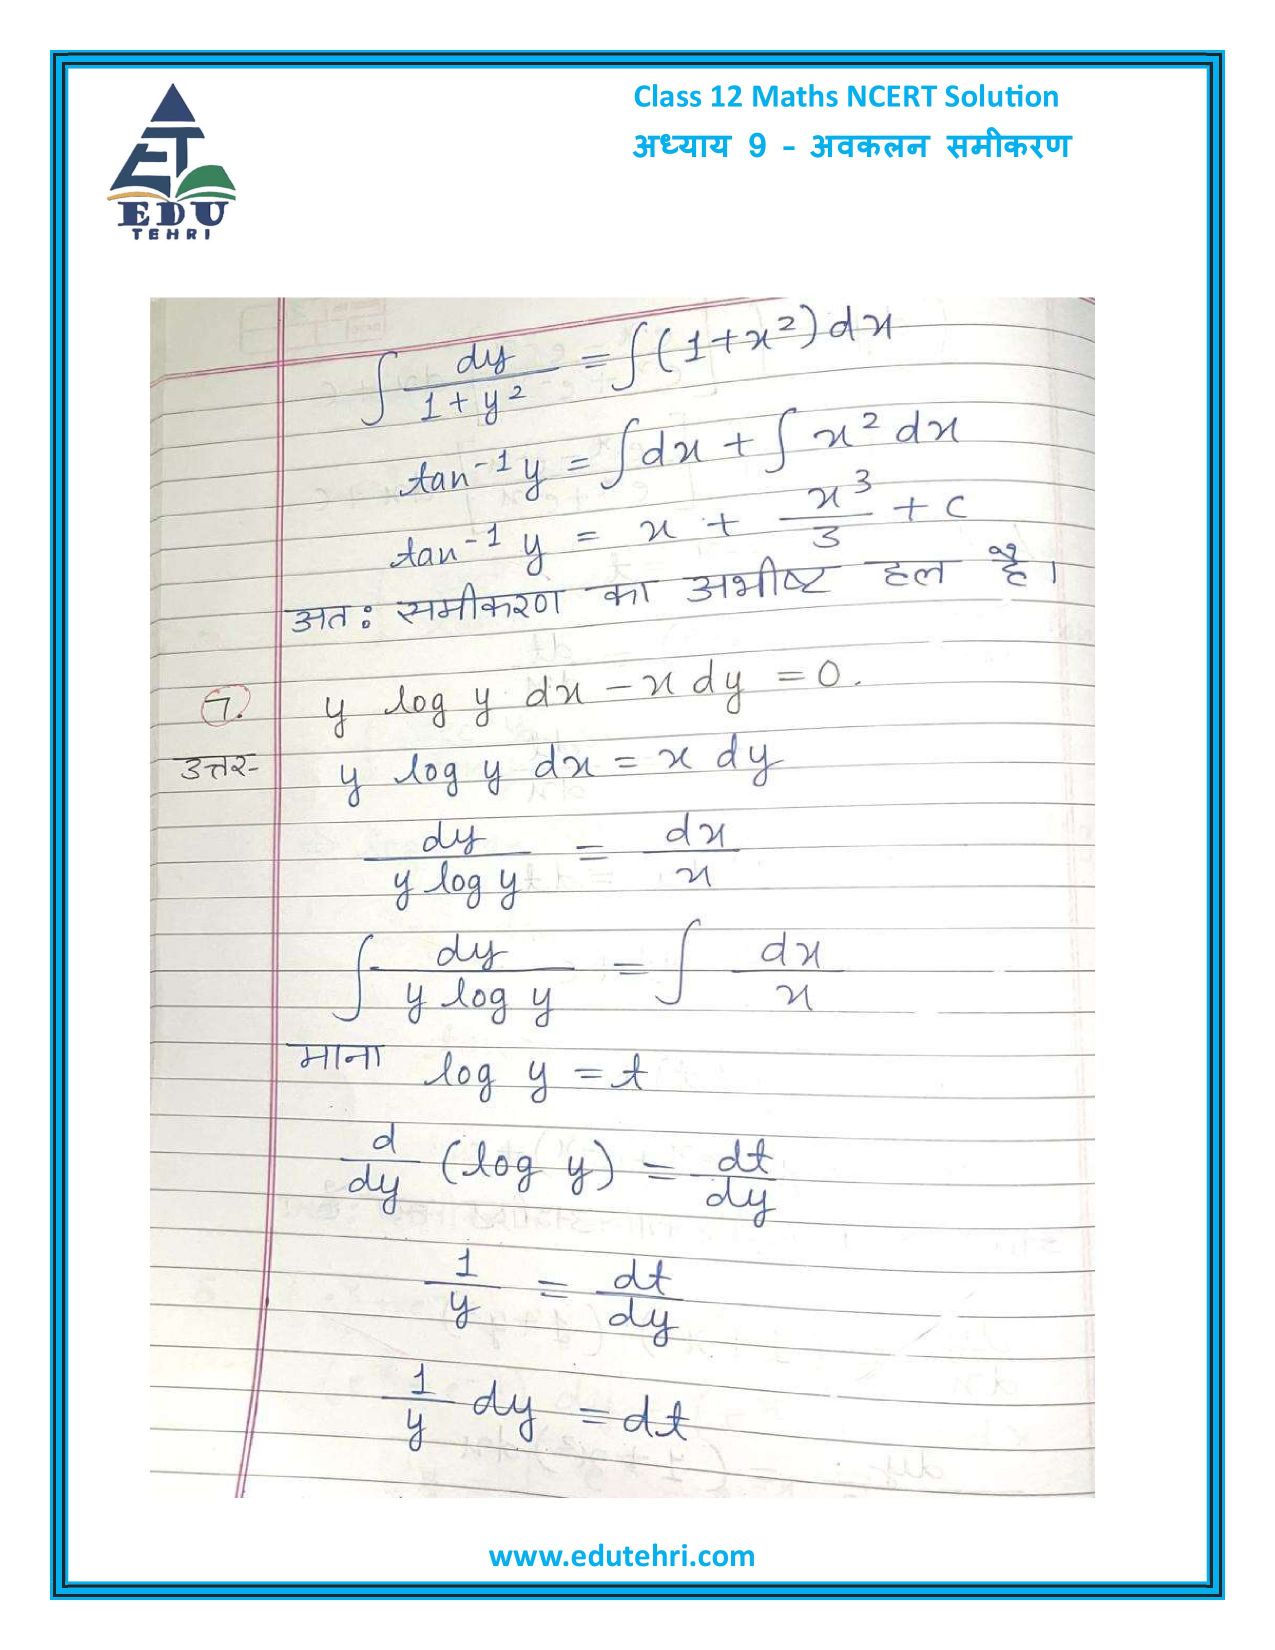 Class 12 Maths NCERT Solution
अध्याय 9 - अवकलन समीकरण
EDU
TEHRI
∫ dy/(1+y²) = ∫(1+x²)dx
tan⁻¹y = ∫dx + ∫x²dx
tan⁻¹y = x + x³/3 + c
अतः समीकरण का अभीष्ट हल है।
7. y log y dx - x dy = 0.
उत्तर- y log y dx = x dy
dy/(y log y) = dx/x
∫ dy/(y log y) = ∫ dx/x
माना log y = t
d/dy (log y) = dt/dy
1/y = dt/dy
1/y dy = dt
www.edutehri.com